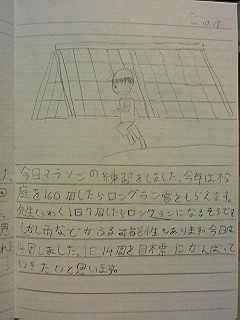 10.19
今日マラソンの練習をしました。今年は校
庭を160周したらロングラン賞をもらえます。
先生いわく1日7周したらロングランになるそうです。
しかし雨などがふる可能性もあります。今日は
4周しました。1日14周を目標にがんばって
いきたいと思います。